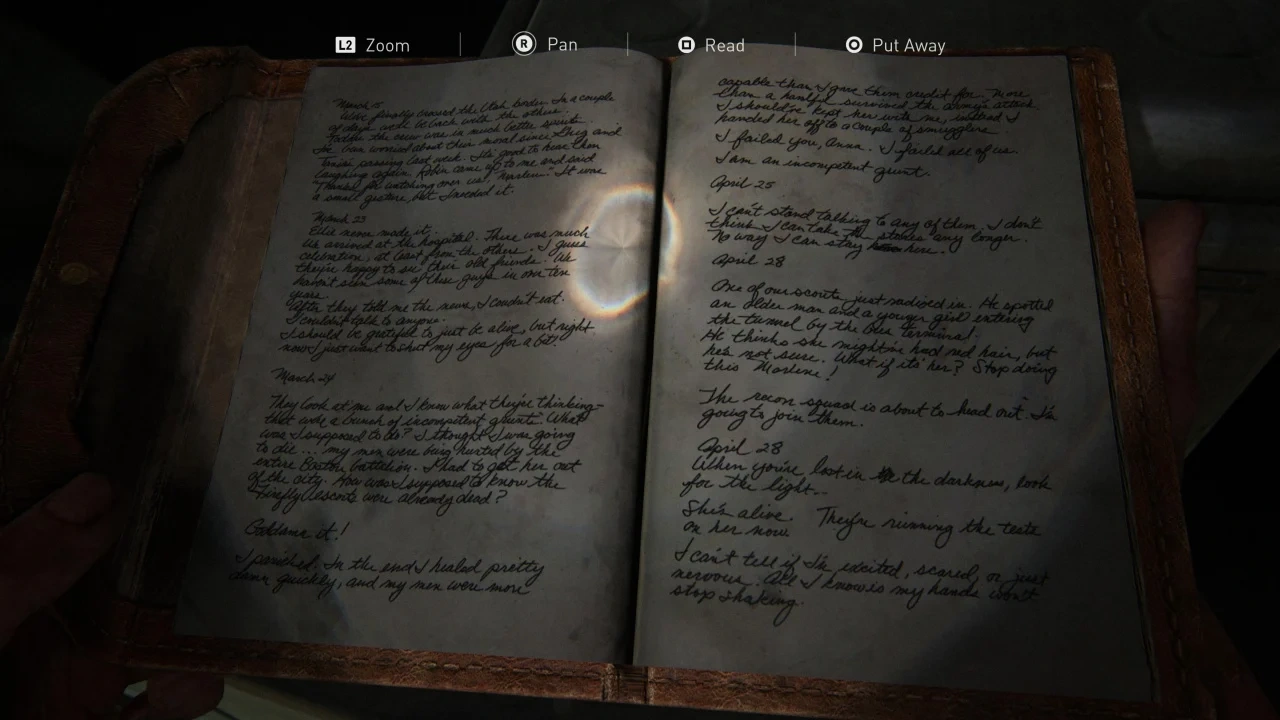 L2 Zoom
R Pan
Read
Put Away
March 15
We finally crossed the Utah border. In a couple
of days we'll be back with the others.
Today the new crew is much better spirits.
I've been worried about their moral since Greg and
passing last week. It's good to hear them
laughing again. Robin came up to me and said
"Thanks for watching over us, Marlene." It was
a small gesture, but I needed it.
March 23
Ellie never made it.
We arrived at the hospital. There was much
celebration, at least from the others. I guess
they're happy to see their old friends. We
haven't seen some of these guys in over ten
years.
After they told me the news, I couldn't eat.
I couldn't talk to anyone.
I should be grateful to just be alive, but right
now I just want to shut my eyes for a bit.
March 24
They look at me and I know what they're thinking-
that we're a bunch of incompetent grunts. What
was I supposed to do? I thought I was going
to die... my men were being hunted by the
entire Boston battalion. I had to get her out
of the city. How was I supposed to know the
Firefly escorts were already dead?
Goddamn it!
I panicked. In the end I healed pretty
damn quickly, and my men were more
capable than I gave them credit for. More
than a handful survived the army's attack.
I should've kept her with me, instead I
handed her off to a couple of smugglers.
I failed you, Anna. I failed all of us.
I am an incompetent grunt.
April 25
I can't stand talking to any of them. I don't
think I can take the stares any longer.
No way I can stay here.
April 28
One of our scouts just radioed in. He spotted
an older man and a younger girl entering
the tunnel by the bus terminal.
He thinks she might've had red hair, but
he's not sure. What if it's her? Stop doing
this Marlene!
The recon squad is about to head out. I'm
going to join them.
April 28
When you're lost in the darkness, look
for the light...
She's alive. They're running the tests
on her now.
I can't tell if I'm excited, scared, or just
nervous. All I know is my hands won't
stop shaking.